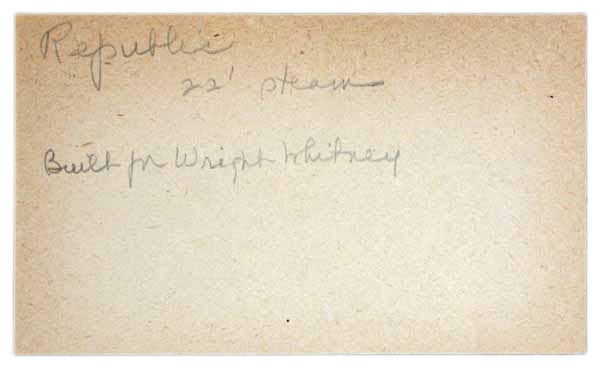 Republic
22' steam
Built for Wright Whitney